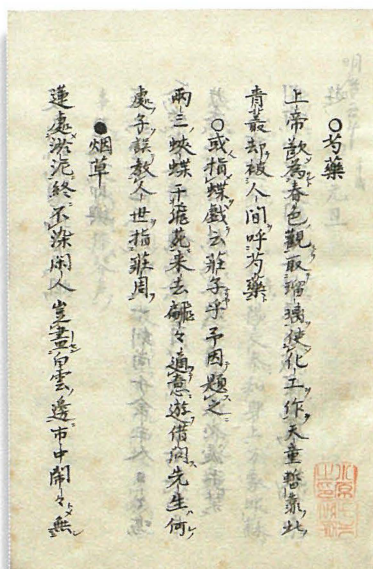 ○芍藥
上帝歡為春色觀取瑠璃使化工作天童暫靠此
青叢却被人間呼芍藥
○或指蝶戲云莊子乎予因題之
兩三蛺蝶于飛花来去翩々適意遊借問先生何
處子誤教人世指莊周
●烟草
蓮處淤泥終不染閑人豈盡白雲邊市中鬧々無